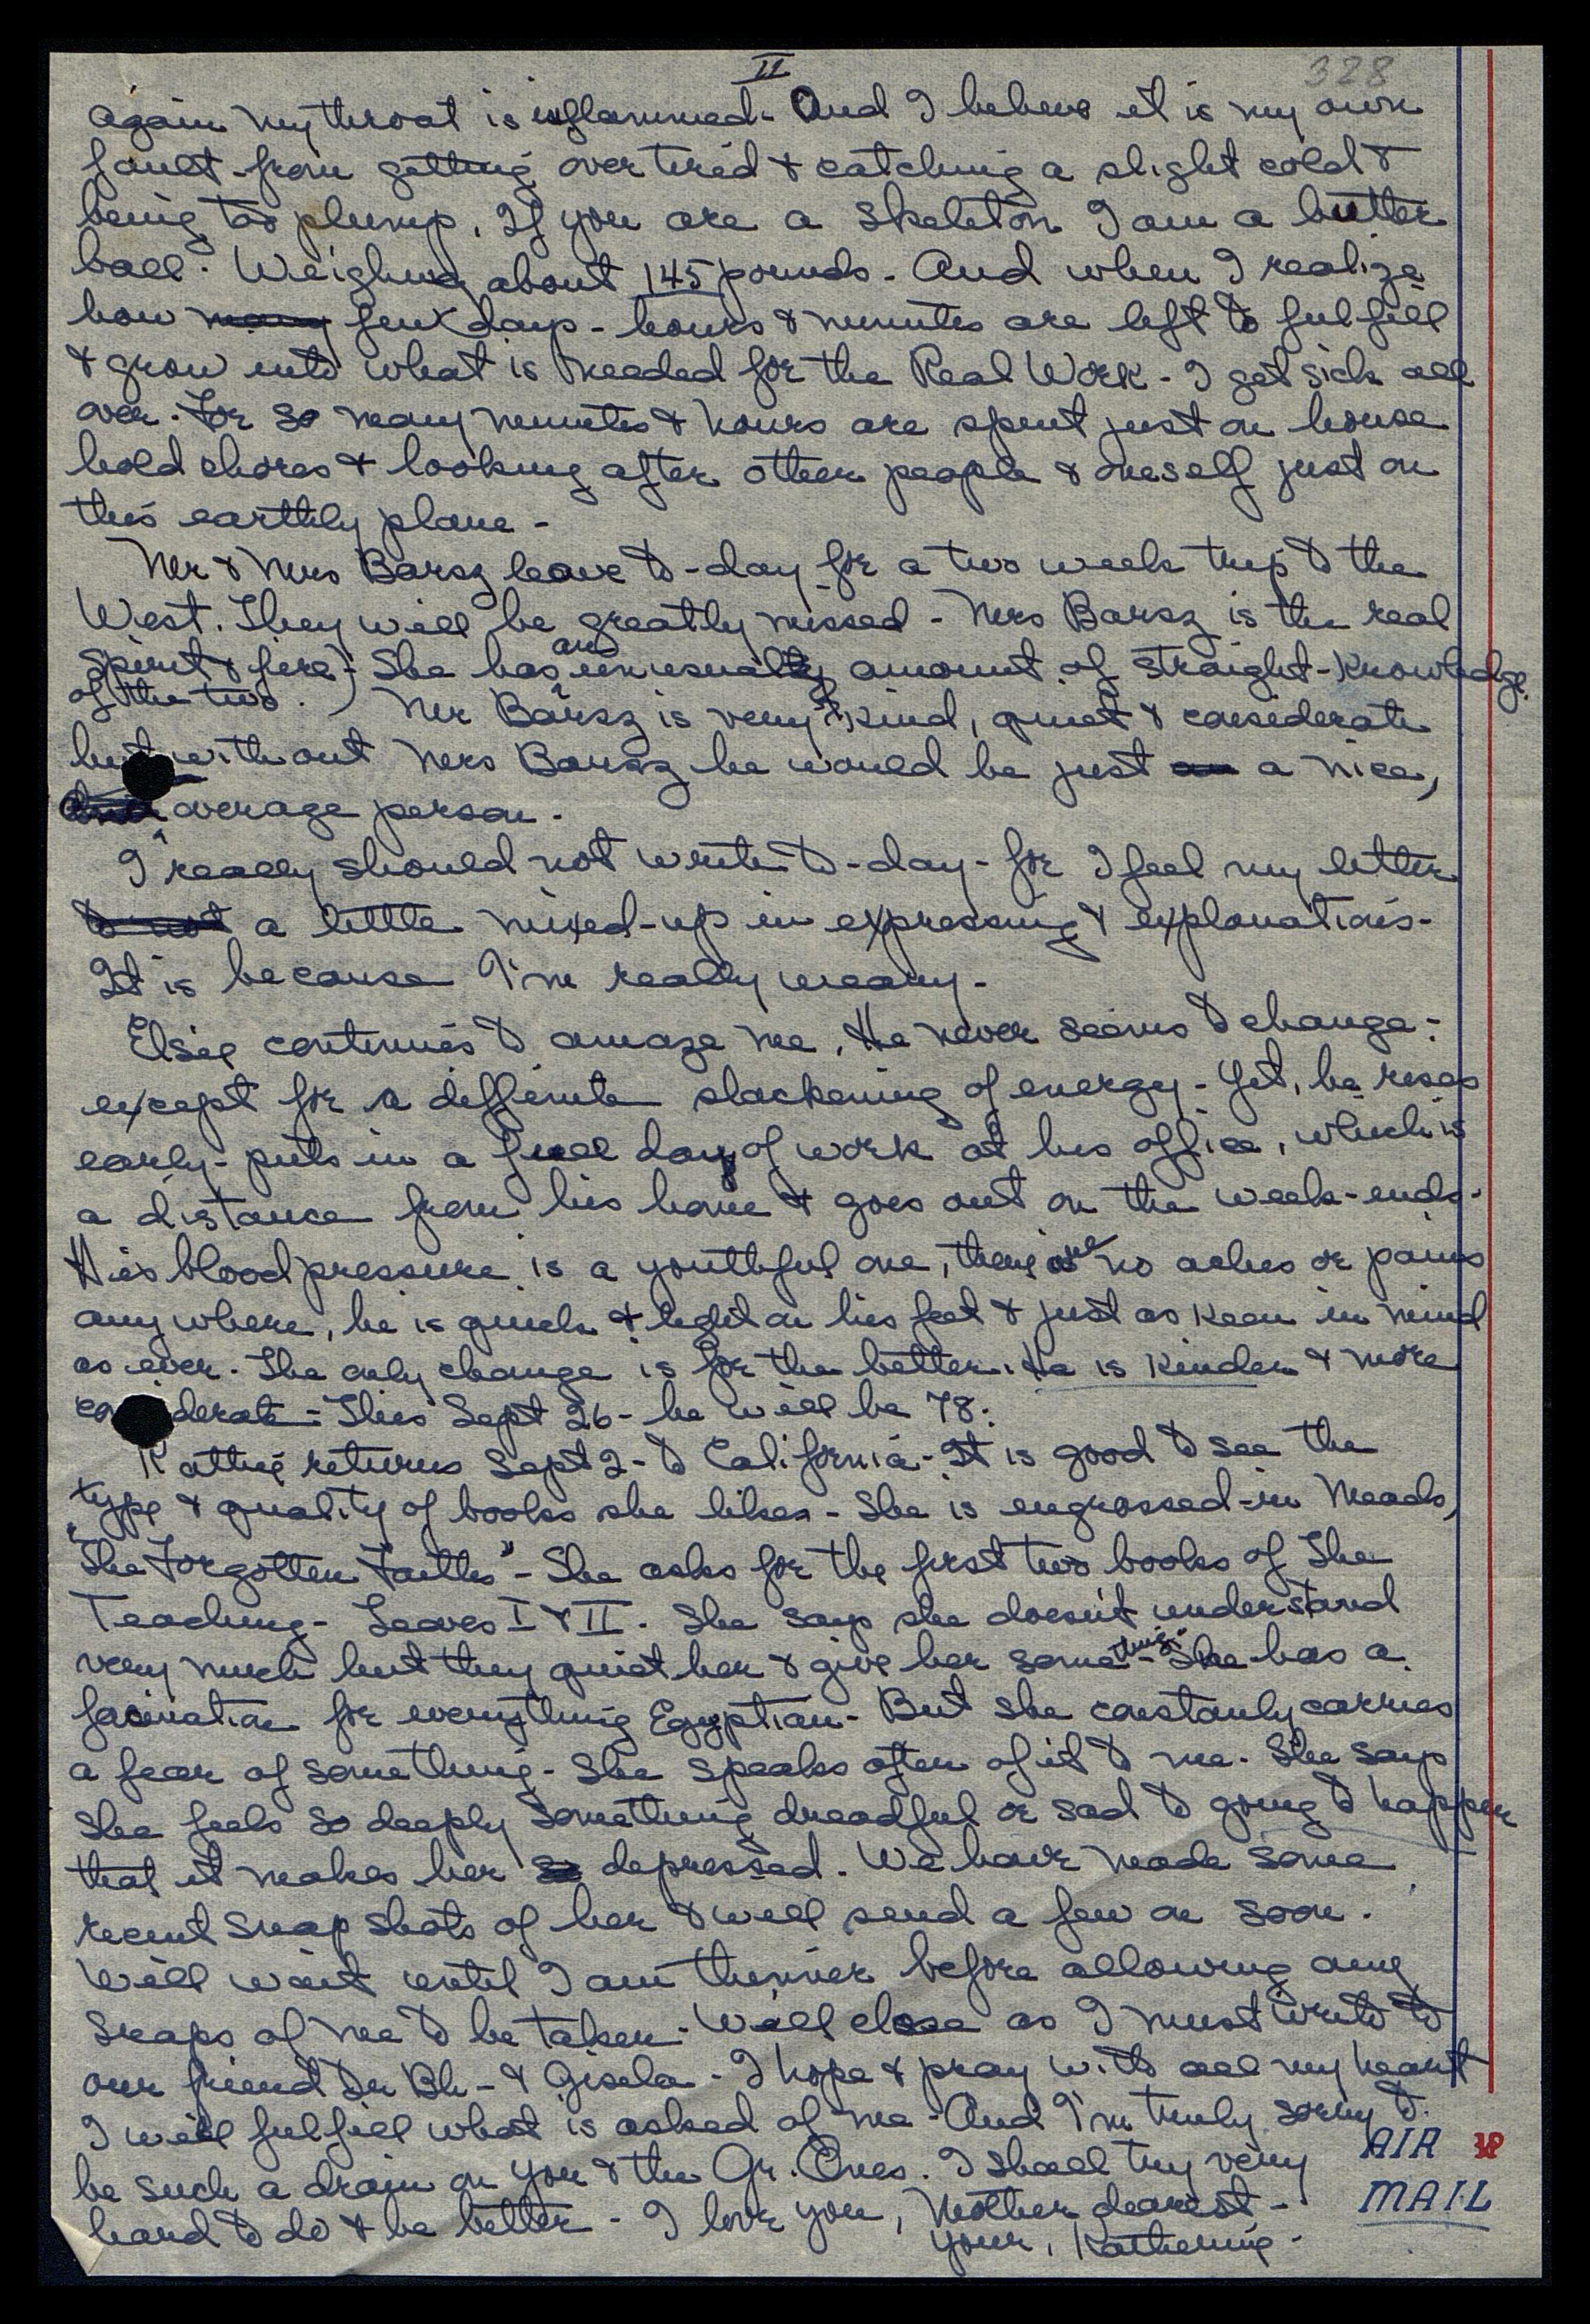 II
328
again my throat is inflammed. And I believe it is my own
fault from getting over tired & catching a slight cold &
being too plump. If you are a skeleton I am a butter
ball. Weighing about 145 pounds - And when I realize
how many few days - hours & minutes are left to fulfill
& grow into what is needed for the Real Work - I get sick all
over. For so many minutes & hours are spent just on house
hold chores & looking after other people & oneself just on
this earthly plane -
Mr & Mrs Barsz leave to-day for a two week trip to the
West. They will be greatly missed - Mrs Barsz is the real
spirit & fire - She has an unusual amount of straight-knowledge
of the two.) Mr Barsz is very kind, quiet & considerate
but without Mrs Barsz he would be just a nice,
average person.
I really should not write to-day - for I feel my letter
a little mixed-up in expressing & explanations -
It is because I'm really weary -
Elsie continues to amaze me. He never seems to change -
except for a deffinite slackening of energy - Yet, he rises
early - puts in a full day of work at his office, which is
a distance from his home & goes out on the week-ends.
His blood pressure is a youthful one, there are no aches or pains
anywhere, he is quick & light on his feet & just as keen in mind
as ever. The only change is for the better. He is kinder & more
considerate - This Sept 26 - he will be 78.
Kattie returns Sept 2 - to California - It is good to see the
type & quality of books she likes - She is engrossed in Meads,
"The Forgotten Faiths" - She asks for the first two books of The
Teaching - Leaves I & II. She says she doesn't understand
very much but they quiet her & give her something - She has a
facination for everything Egyptian - But she constanly carries
a fear of something - She speaks often of it to me. She says
she feels so deeply something dreadful or sad to going to happen
that it makes her so depressed. We have made some
recent snap shots of her & will send a few on soon.
Will wait until I am thinner before allowing any
snaps of me to be taken - Will close as I must write to
our friend Dr Bh - & Gisela - I hope & pray with all my heart
I will fulfill what is asked of me - And I'm truly sorry to
be such a drain on you & the Gr. Ones. I shall try very
hard to do & be better - I love you, Mother dearest -
Your, Katherine -
AIR
MAIL